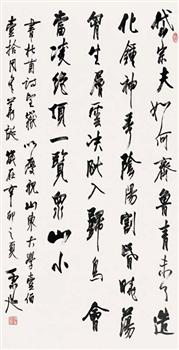 岱宗夫如何齊魯青未了造
化鍾神秀陰陽割昏曉蕩
胸生層雲決眥入歸鳥會
當凌絕頂一覽眾山小
書杜甫詩望嶽以慶祝山東大學壹佰
壹拾周年華誕歲在辛卯之夏